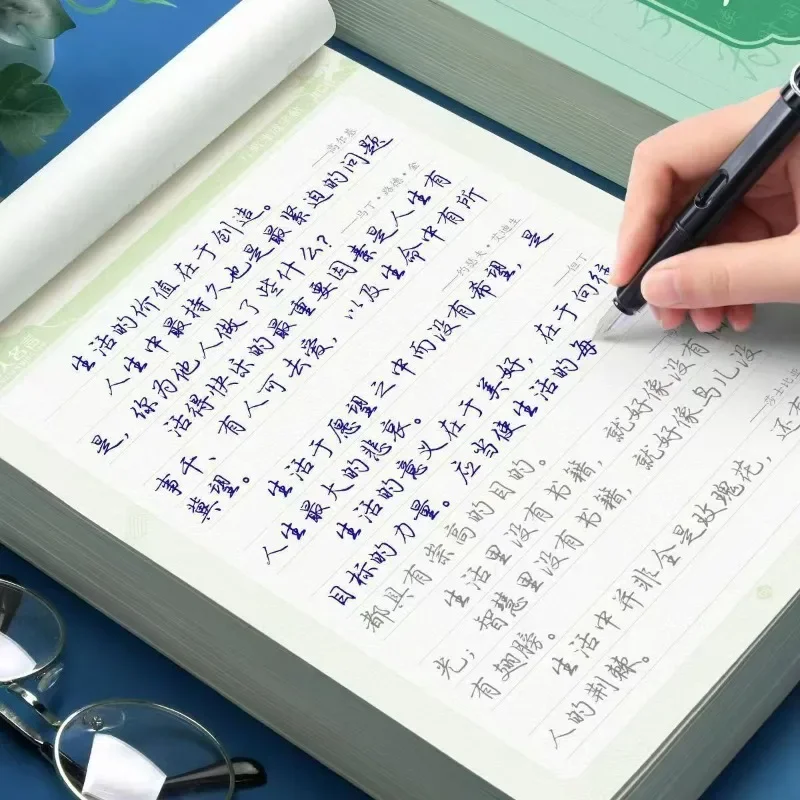 生活的价值在于创造。 ——高尔基
人生中最持久也是最紧迫的问题
是，你为他人做了些什么？ ——马丁·路德·金
活得快乐的最重要因素是人生有
事干、有人可去爱，以及生命中有所
冀望。 ——约瑟夫·艾迪生
生活于愿望之中而没有希望，是
人生最大的悲哀。 ——但丁
生活的意义在于美好，在于向往
目标的力量。应当使生活的每
都具有崇高的目的。
生活里没有书籍，就好像没有
光；智慧里没有书籍，就好像鸟儿没
有翅膀。 ——莎士比亚
生活中并非全是玫瑰花，还有
人的荆棘。